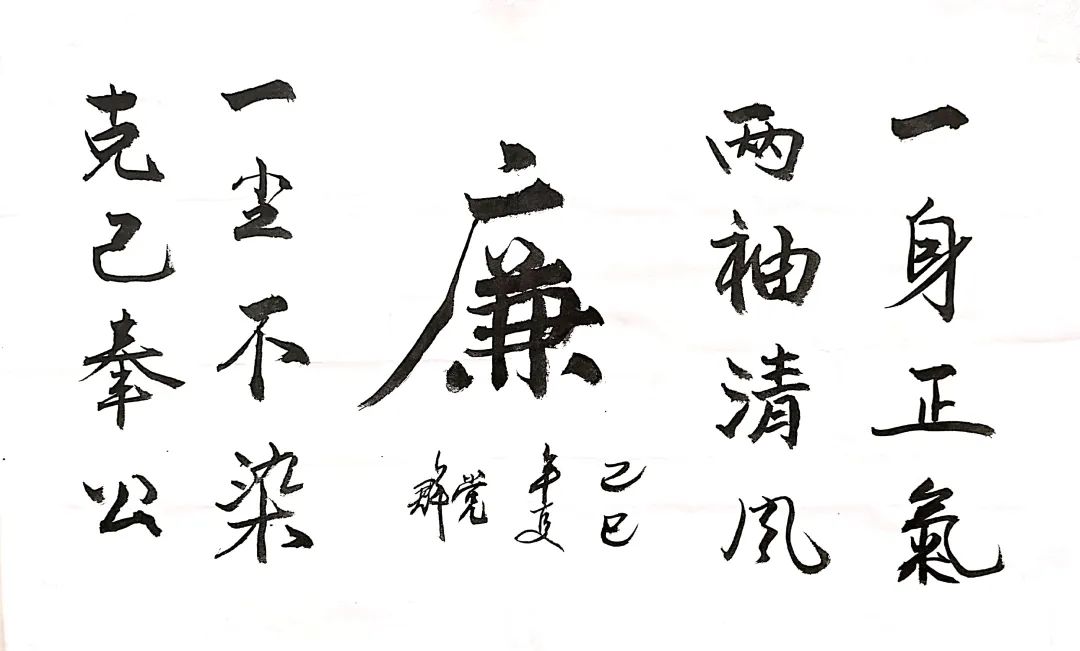 一身正氣
两袖清风
廉
己巳
年夏
一尘不染
克己奉公